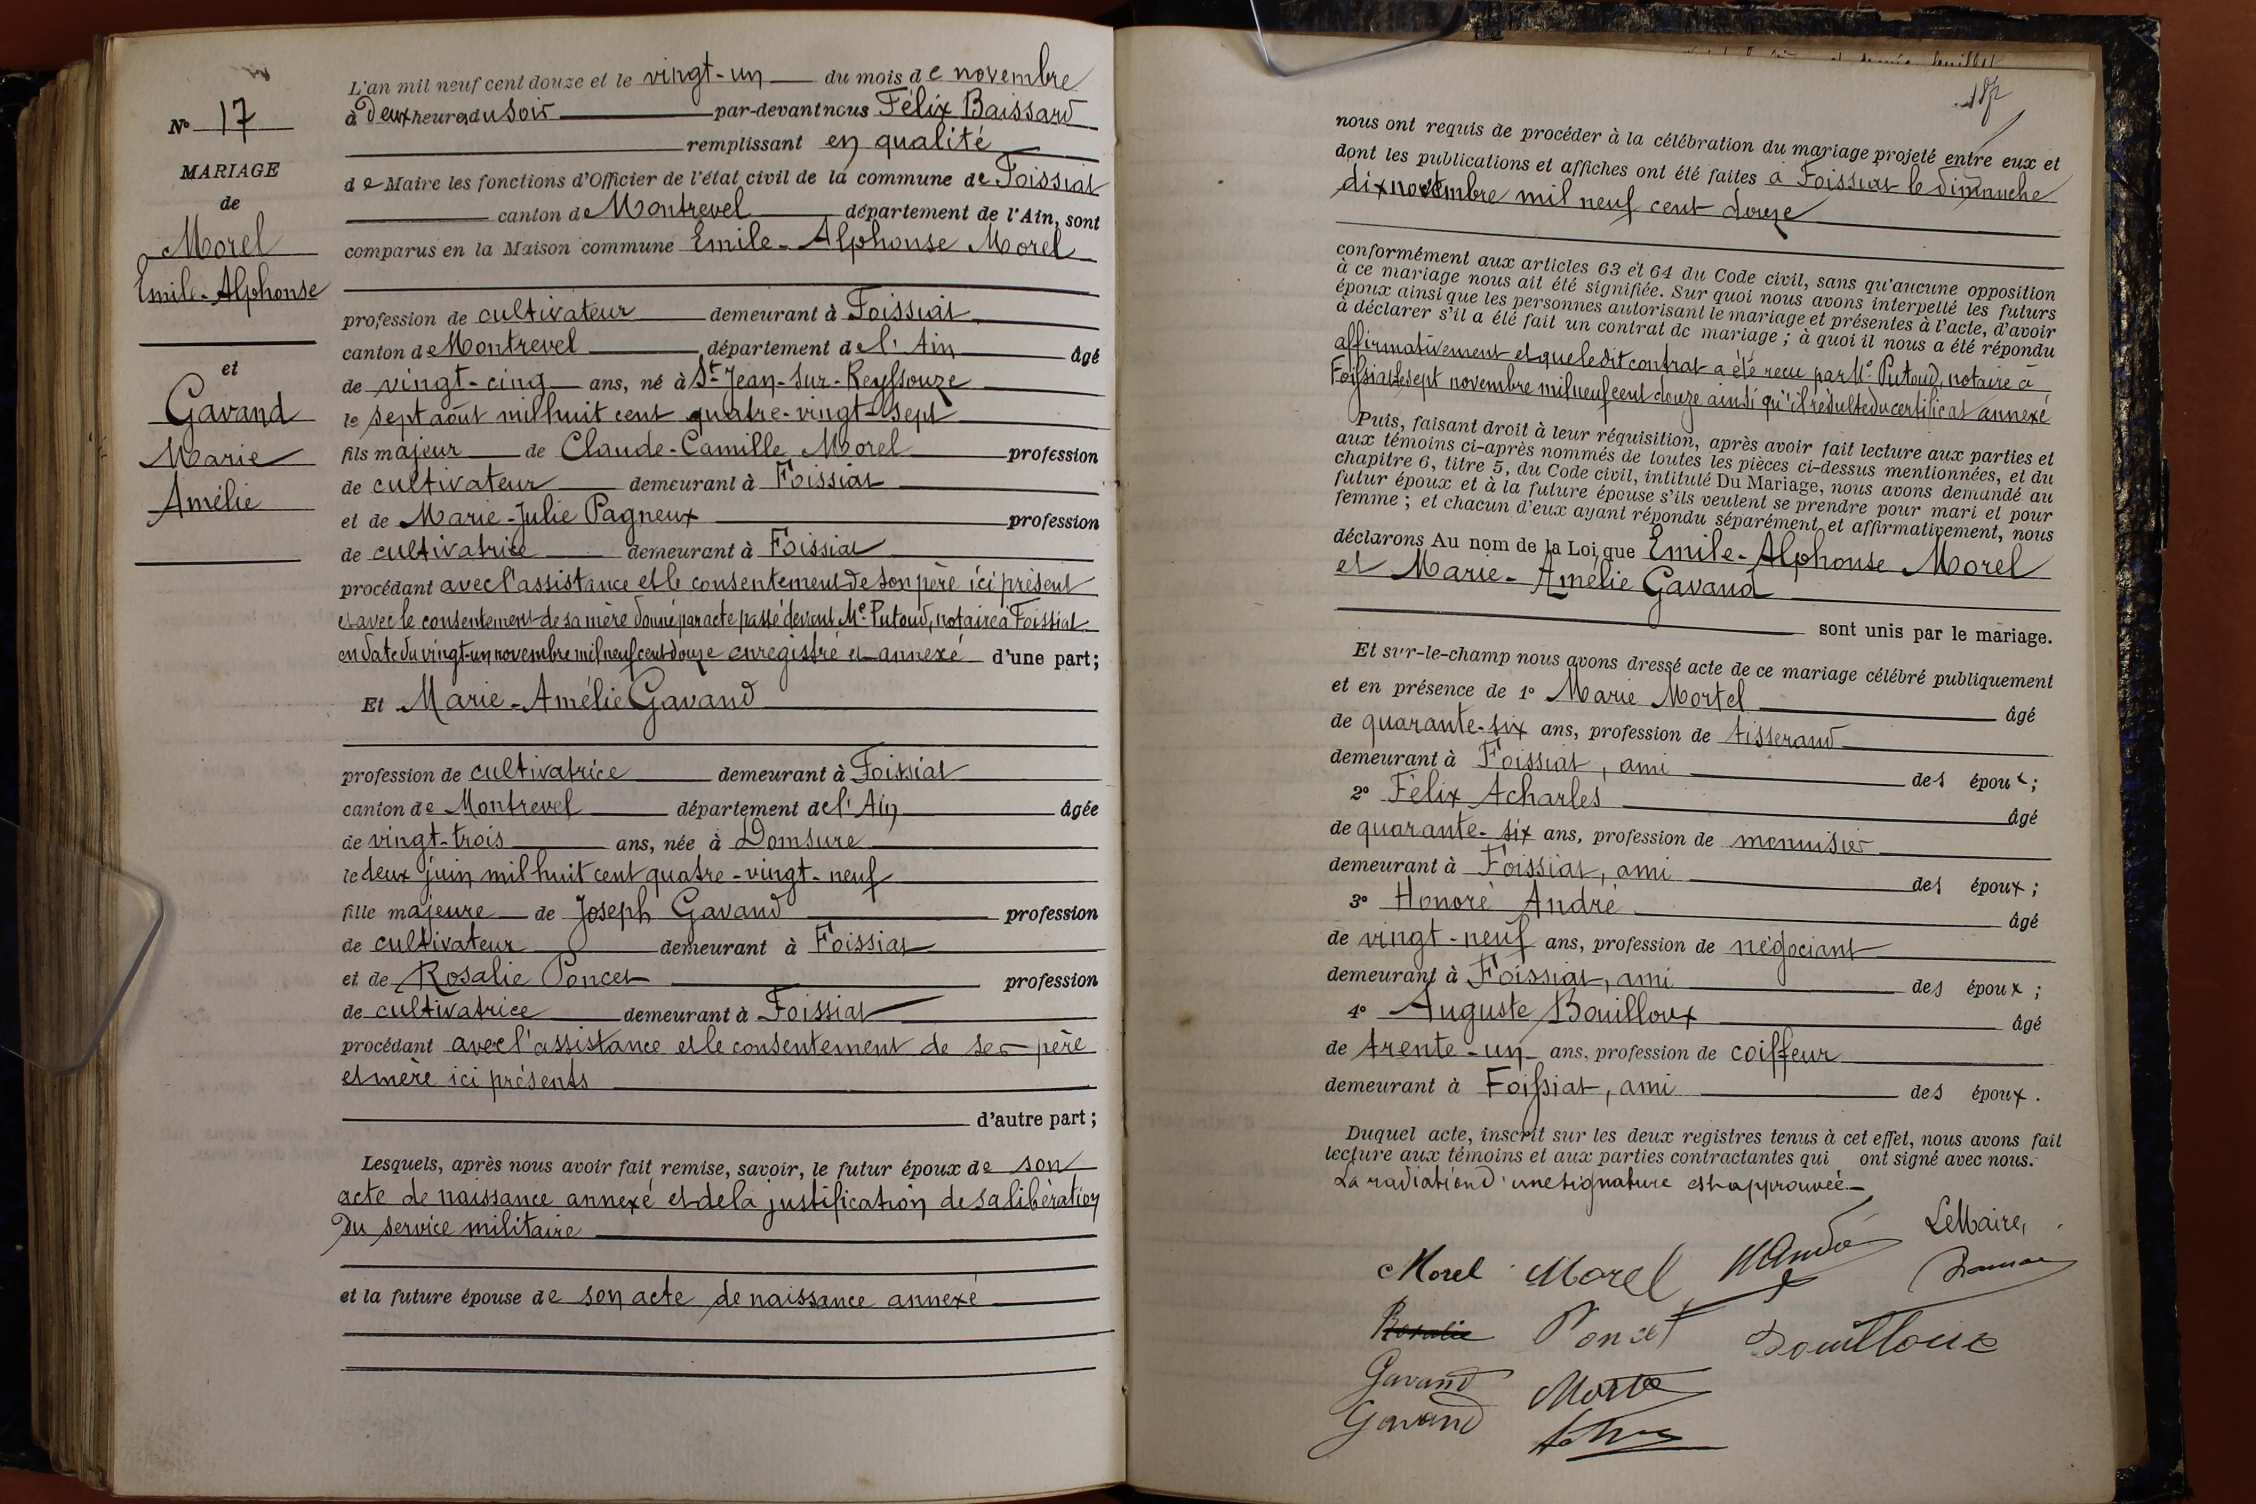 N° 17
MARIAGE
de
Morel
Emile-Alphonse
et
Gavand
Marie
Amélie
L'an mil neuf cent douze et le vingt-un du mois de novembre
à deux heures du soir par-devant nous Félix Baissard
remplissant en qualité
de Maire les fonctions d'Officier de l'état civil de la commune de Foissiat
canton de Montrevel département de l'Ain, sont
comparus en la Maison commune Emile-Alphonse Morel
profession de cultivateur demeurant à Foissiat
canton de Montrevel département de l'Ain âgé
de vingt-cinq ans, né à St-Jean-sur-Reyssouze
le sept août mil huit cent quatre-vingt-sept
fils majeur de Claude-Camille Morel profession
de cultivateur demeurant à Foissiat
et de Marie-Julie Pagneux profession
de cultivatrice demeurant à Foissiat
procédant avec l'assistance et le consentement de son père ici présent
et avec le consentement de sa mère donné par acte passé devant Me Putoud, notaire à Foissiat
en date du vingt-un novembre mil neuf cent douze enregistré et annexé d'une part;
Et Marie-Amélie Gavand
profession de cultivatrice demeurant à Foissiat
canton de Montrevel département de l'Ain âgée
de vingt-trois ans, née à Domsure
le deux juin mil huit cent quatre-vingt-neuf
fille majeure de Joseph Gavand profession
de cultivateur demeurant à Foissiat
et de Rosalie Poncet profession
de cultivatrice demeurant à Foissiat
procédant avec l'assistance et le consentement de ses père
et mère ici présents
d'autre part;
Lesquels, après nous avoir fait remise, savoir, le futur époux de son
acte de naissance annexé et de la justification de sa libération
du service militaire
et la future épouse de son acte de naissance annexé
nous ont requis de procéder à la célébration du mariage projeté entre eux et
dont les publications et affiches ont été faites à Foissiat le dimanche
dix novembre mil neuf cent douze
conformément aux articles 63 et 64 du Code civil, sans qu'aucune opposition
à ce mariage nous ait été signifiée. Sur quoi nous avons interpellé les futurs
époux ainsi que les personnes autorisant le mariage et présentes à l'acte, d'avoir
à déclarer s'il a été fait un contrat de mariage; à quoi il nous a été répondu
affirmativement et que ledit contrat a été reçu par Me Putoud, notaire à
Foissiat le sept novembre mil neuf cent douze ainsi qu'il résulte du certificat annexé
Puis, faisant droit à leur réquisition, après avoir fait lecture aux parties et
aux témoins ci-après nommés de toutes les pièces ci-dessus mentionnées, et du
chapitre 6, titre 5, du Code civil, intitulé Du Mariage, nous avons demandé au
futur époux et à la future épouse s'ils veulent se prendre pour mari et pour
femme; et chacun d'eux ayant répondu séparément et affirmativement, nous
déclarons Au nom de la Loi, que Emile-Alphonse Morel
et Marie-Amélie Gavand
sont unis par le mariage.
Et sur-le-champ nous avons dressé acte de ce mariage célébré publiquement
et en présence de 1° Marie Mortel âgé
de quarante-six ans, profession de tisserand
demeurant à Foissiat, ami des époux;
2° Félix Acharles âgé
de quarante-six ans, profession de menuisier
demeurant à Foissiat, ami des époux;
3° Honoré André âgé
de vingt-neuf ans, profession de négociant
demeurant à Foissiat, ami des époux;
4° Auguste Bouilloux âgé
de trente-un ans, profession de coiffeur
demeurant à Foissiat, ami des époux.
Duquel acte, inscrit sur les deux registres tenus à cet effet, nous avons fait
lecture aux témoins et aux parties contractantes qui ont signé avec nous.
La radiation d'une signature est approuvée.
Le Maire,
Morel Morel H André
Rosalie Poncet Bouilloux
Gavand Mortel
Gavand